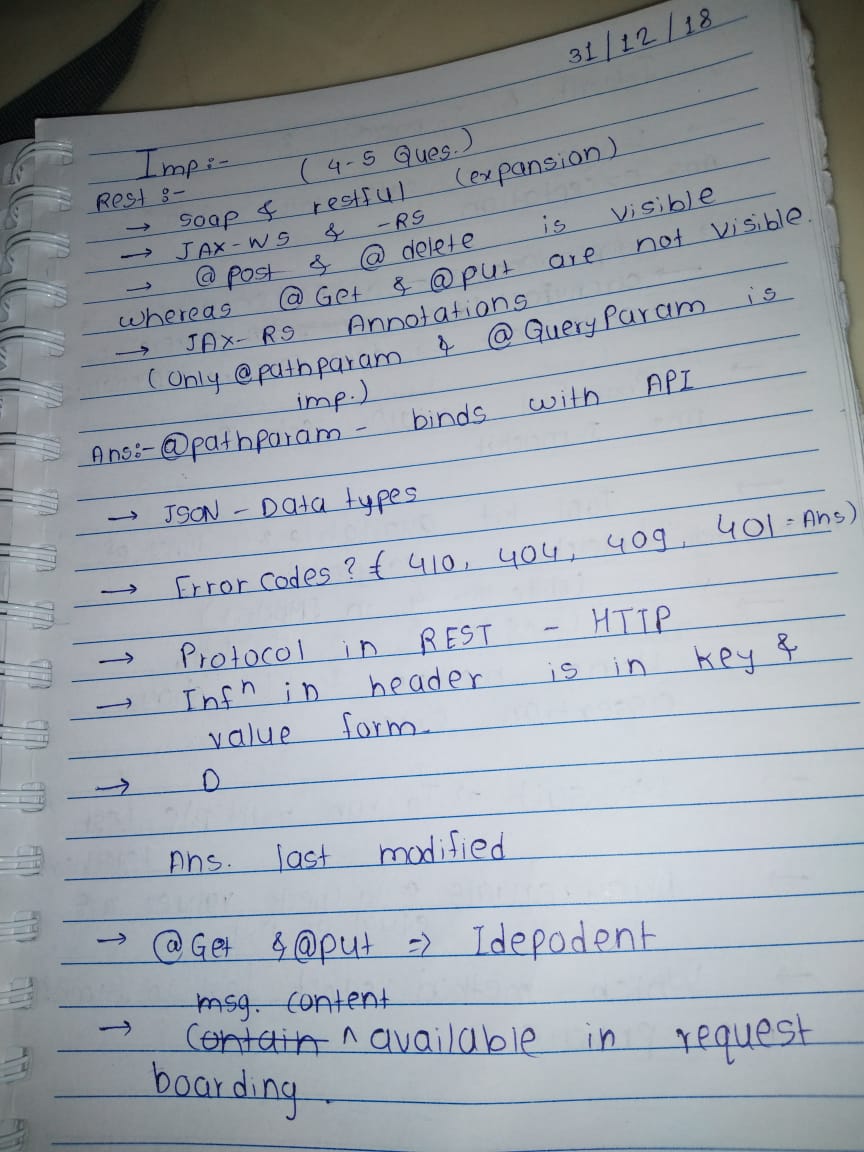 31/12/18
Imp:- (4-5 Ques.)
Rest :-
→ soap & restful (expansion)
→ JAX-WS & -RS
→ @ post & @ delete is visible
whereas @ Get & @ put are not visible.
→ JAX-RS Annotations
(Only @pathparam & @ QueryParam is
imp.)
Ans:- @pathparam - binds with API
→ JSON - Data types
→ Error codes? { 410, 404, 409, 401 = Ans)
→ Protocol in REST - HTTP
→ Infn in header is in key &
value form.
→ D
Ans. last modified
→ @Get & @put => Idepodent
msg. content
→ Contain ^ available in request
boarding.